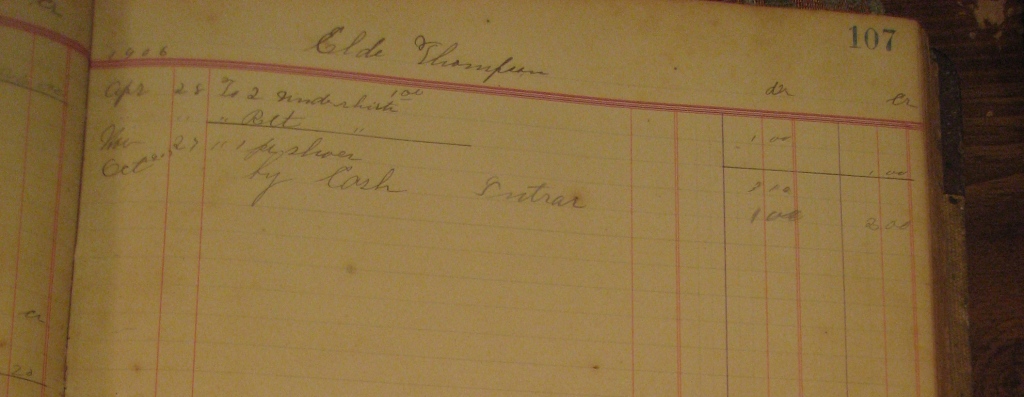 cr
107
Elde Thompson
1906 dr cr
Apr 28 To 2 undershirts 1.00
" Belt " 1 00
Nov 27 " 1 pr shoes 1 00
Oct by Cash
1 00 2 00
cr
20